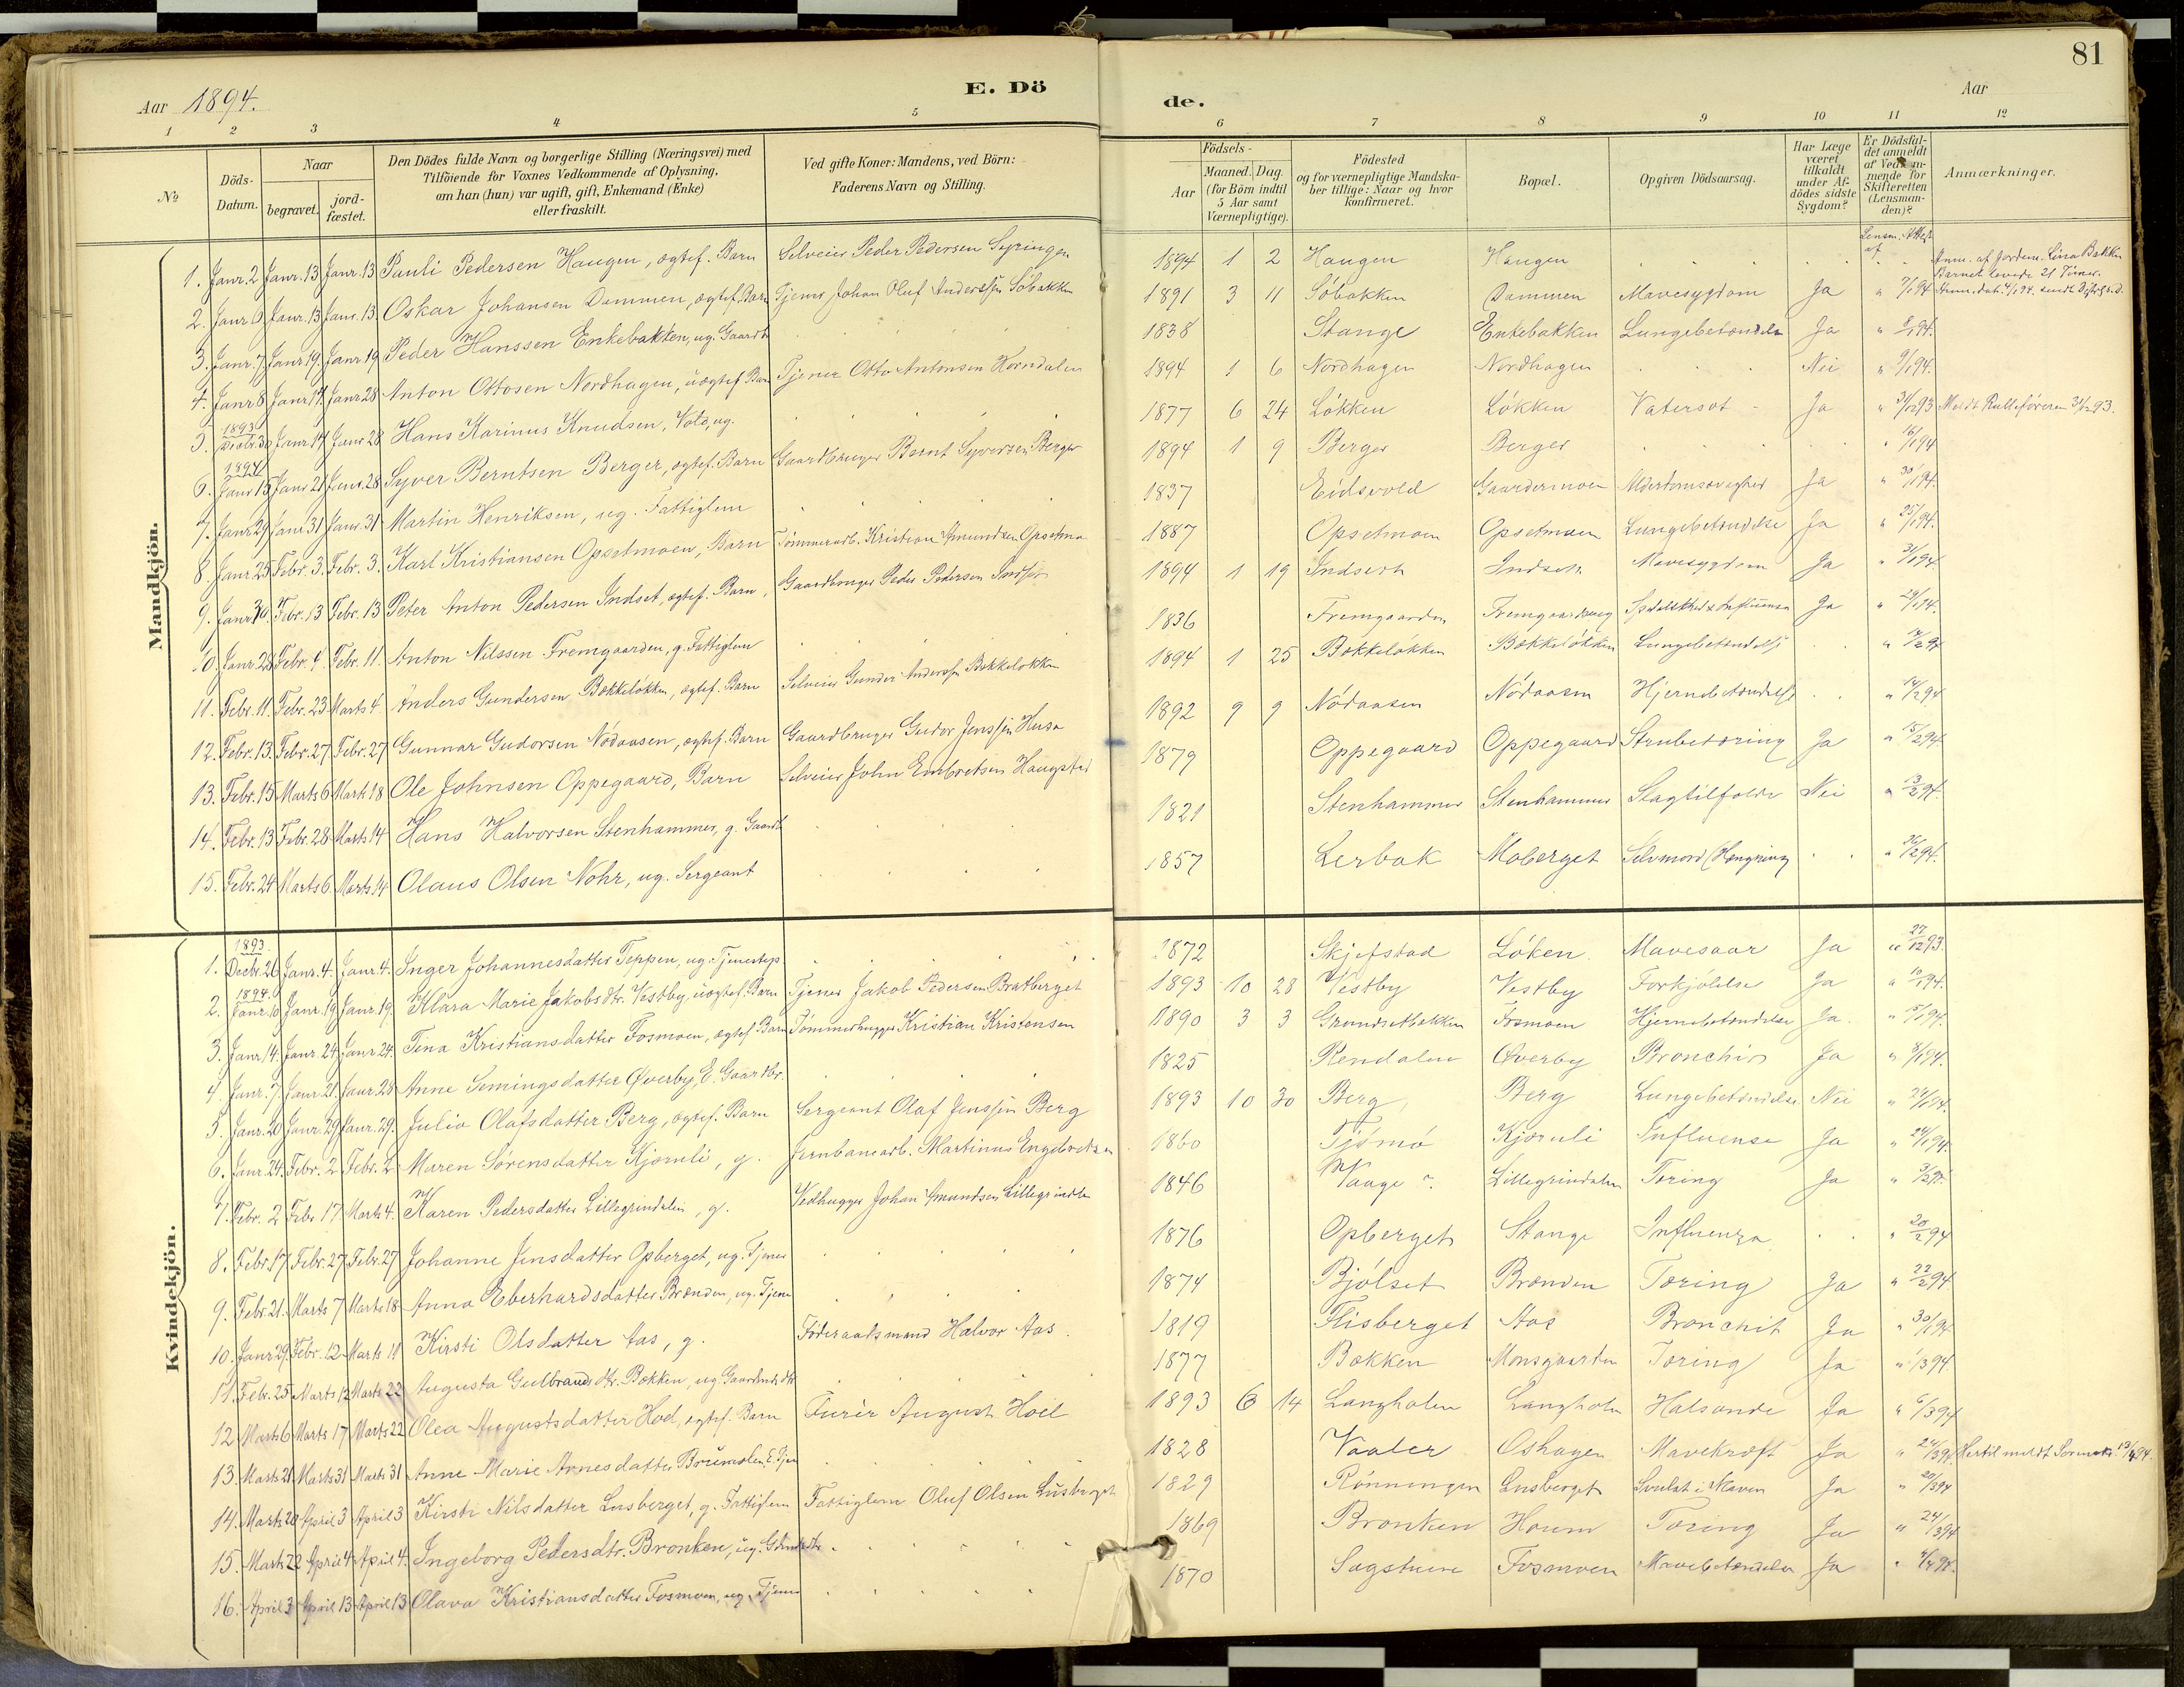 81
Aar 1894.
E. Dö
de.
Aar
1 2 3 4 5 6 7 8 9 10 11 12
No
Döds-Datum.
Naar
begravet.
jord-fæstet.
Den Dödes fulde Navn og borgerlige Stilling (Næringsvei) med
Tilföiende for Voxnes Vedkommende af Oplysning,
om han (hun) var ugift, gift, Enkemand (Enke)
eller fraskilt.
Ved gifte Koner: Mandens, ved Börn:
Faderens Navn og Stilling.
Födsels-
Aar
Maaned. Dag.
(for Börn indtil
5 Aar samt
Værnepligtige).
Födested
og for værnepligtige Mandska-
ber tillige: Naar og hvor
konfirmeret.
Bopæl.
Opgiven Dödsaarsag.
Har Læge
været
tilkaldt
under Af-
dödes sidste
Sygdom?
Er Dödsfal-
det anmeldt
af Vedkom-
mende for
Skifteretten
(Lensman-
den)?
Anmærkninger.
Mandkjön.
1. Janr. 2 Janr. 13 Janr. 13 Pauli Pedersen Haugen, ægtef. Barn Selveier Peder Pedersen 1894 1 2 Haugen Haugen Lensm. Attest af Anm. af Jordem. Lina Bakken Barnet levede 21 Timer.
2. Janr. 6 Janr. 13 Janr. 13 Oskar Johansen Dammen, ægtef. Barn Tjener Johan Oluf Anderssen Söbakken 1891 3 11 Söbakken Dammen Mavesygdom Ja " 7/1 94
3. Janr. 7 Janr. 19. Janr. 19 Peder Hanssen Enkebakken, ug. Gaardbr 1838 Stange Enkebakken Lungebetændelse Ja " 8/1 94.
4. Janr 8 Janr 14. Janr 28 Anton Ottosen Nordhagen, uægtef. Barn Tjener Otto Antonsen Horndalen 1894 1 6 Nordhagen Nordhagen Nei " 9/1 94.
5. 1893 Decbr. 30 Janr 14 Janr 28 Hans Karinus Knudsen, Vold, ug. 1877 6 24 Lökken Lökken Vatersot Ja " 31/12 93 Meldt Rulleföreren 31/12 93.
6. 1894 Janr 15 Janr 21 Janr. 28 Syver Berntsen Berger, ægtef. Barn Gaardbruger Bernt Syversen Berger 1894 1 9 Berger Berger " 16/1 94
7. Janr 29 Janr 31 Janr. 31 Martin Henriksen, ug. Fattiglem 1837 Eidsvold Gaardermoen Alderdomssvaghed Ja " 30/1 94.
8. Janr 25 Febr. 3. Febr. 3. Karl Kristiansen Opsetmoen, Barn Tömmerarb. Kristian Amundsen Opsetmo 1887 Opsetmoen Opsetmoen Lungebetændelse Ja " 25/1 94.
9. Janr 30. Febr. 13 Febr. 13 Peter Anton Pedersen Indset, ægtef. Barn, Gaardbruger Peder Pedersen Indset 1894 1 19 Indseth Indset Mavesygdom Ja " 31/1 94
10. Janr. 28 Febr. 4. Febr. 11. Anton Nilssen Fremgaarden, g. Fattiglem 1836 Fremgaarden Spedalskhed & Influensa Ja " 29/1 94.
11. Febr. 11. Febr. 23 Marts 4. Anders Gundersen Bækkelökken, ægtef. Barn Selveier Gunder Anderssen Bækkelökken 1894 1 25 Bækkelökken Bækkelökken Lungebetændelse
12. Febr. 13. Febr. 27 Febr. 27 Gunnar Gudorsen Nödaasen, ægtef. Barn Gaardbruger Gudor Jenssen Husa 1892 9 9 Nödaasen Nödaasen Hjernebetændelse " 14/2 94
13. Febr. 15 Marts 6 Marts 18 Ole Johnsen Oppegaard, Barn Selveier John Embretsen Haugstad 1879 Oppegaard Oppegaard Strubetæring Ja " 15/2 94.
14. Febr. 13 Febr. 28 Marts 14 Hans Halvorsen Stenhammer, g. Gaardb 1821 Stenhammer Stenhammer Slagtilfælde Nei " 13/2 94.
15. Febr. 24 Marts 6 Marts 14 Olaus Olsen Nohr, ug. Sergeant 1857 Lerbak Moberget Selvmord (Hængning " 26/2 94.
Kvindekjön.
1. 1893 Decbr. 26 Janr. 4. Janr. 4. Inger Johannesdatter Teppen, ug. Tjenestep. 1872 Skjefstad Löken. Mavesaar Ja " 27/12 93.
2. 1894. Janr. 10 Janr. 19 Janr. 19. Klara Marie Jakobsdtr. Vestby, uægtef. Barn Tjener Jakob Pedersen Bratberget 1893 10 28 Vestby Vestby Forkjölelse Ja " 10/1 94.
3. Janr. 14. Janr. 24 Janr 24. Tina Kristiansdatter Fosmoen, ægtef. Barn Tömmerhugger Kristian Kristensen 1890 3 3 Grundsetbakken Fosmoen Hjernebetændelse Ja " 15/1 94.
4. Janr. 7. Janr. 21. Janr. 28 Anne Semingsdatter Øverby, E. Gaardbr. 1825 Rendalen Øverby Bronchit Ja " 8/1 94.
5. Janr. 20 Janr. 29 Janr. 29. Julia Olafsdatter Berg, ægtef. Barn Sergeant Olaf Jenssen Berg 1893 10 30 Berg Berg Lungebetændelse Nei " 24/1 94.
6. Janr 24. Febr. 2 Febr. 2. Maren Sörensdatter Kjernli, g. Jernbanearb. Martinus Engebretsen 1860 Tjömö Kjernli Influense Ja " 24/1 94.
7. Febr. 2 Febr 17 Marts 4. Karen Pedersdatter Lillegrindalen, g. Vedhugger Johan Amundsen Lillegrindln 1846 Vaage Lillegrindalen Tæring Ja " 3/2 94.
8. Febr. 17 Febr. 27 Febr. 27 Johanne Jensdatter Opberget, ug. Tjener 1876 Opberget Stange Influenza " 20/2 94
9. Febr 21. Marts 7 Marts 18 Anna Eberhardsdatter Brænden, ug. Tjene 1874 Bjölset Brænden Tæring Ja " 22/2 94.
10. Janr 29. Febr. 12 Marts 11 Kirsti Olsdatter Aas, g. Föderaadsmand Halvor Aas. 1819 Flisberget Aas Bronchit Ja " 30/1 94
11. Febr. 25 Marts 12 Marts 22 Augusta Gulbrandsdtr. Bakken, ug. 1877 Bakken Monsgaarden Tæring Ja " 1/3 94.
12 Marts 6 Marts 17 Marts 22 Olea Augustsdatter Hoel, ægtef. Barn Furér August Hoel 1893 6 14 Langholen Langholn Halsonde Ja " 6/3 94
13. Marts 21 Marts 31 Marts 31 Anne Marie Arnesdatter E. Tjen 1828 Vaaler Oshagen Mavekræft Ja " 24/3 94. Hertil meldt
14. Marts 20 April 3 April 3 Kirsti Nilsdatter Lusberget, g. Fattiglem Fattiglem Oluf Olsen Lusberget 1829 Rönningen Lusberget Svulst i Maven Ja " 20/3 94
15. Marts 22 April 4. April 4. Ingeborg Pedersdtr. Bronken, ug. 1869 Bronken Houm Tæring Ja " 24/3 94
16. April 3 April 13 April 13 Olava Kristiansdatter Fosmoen, ug. Tjener 1870 Sagstuen Fosmoen Mavebetændelse Ja " 4/4 94.